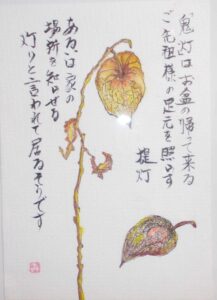 鬼灯はお盆の帰って来る
ご先祖様の足元を照らす
提灯
あるいは家の
場所を知らせる
灯りと言われて居るそうです